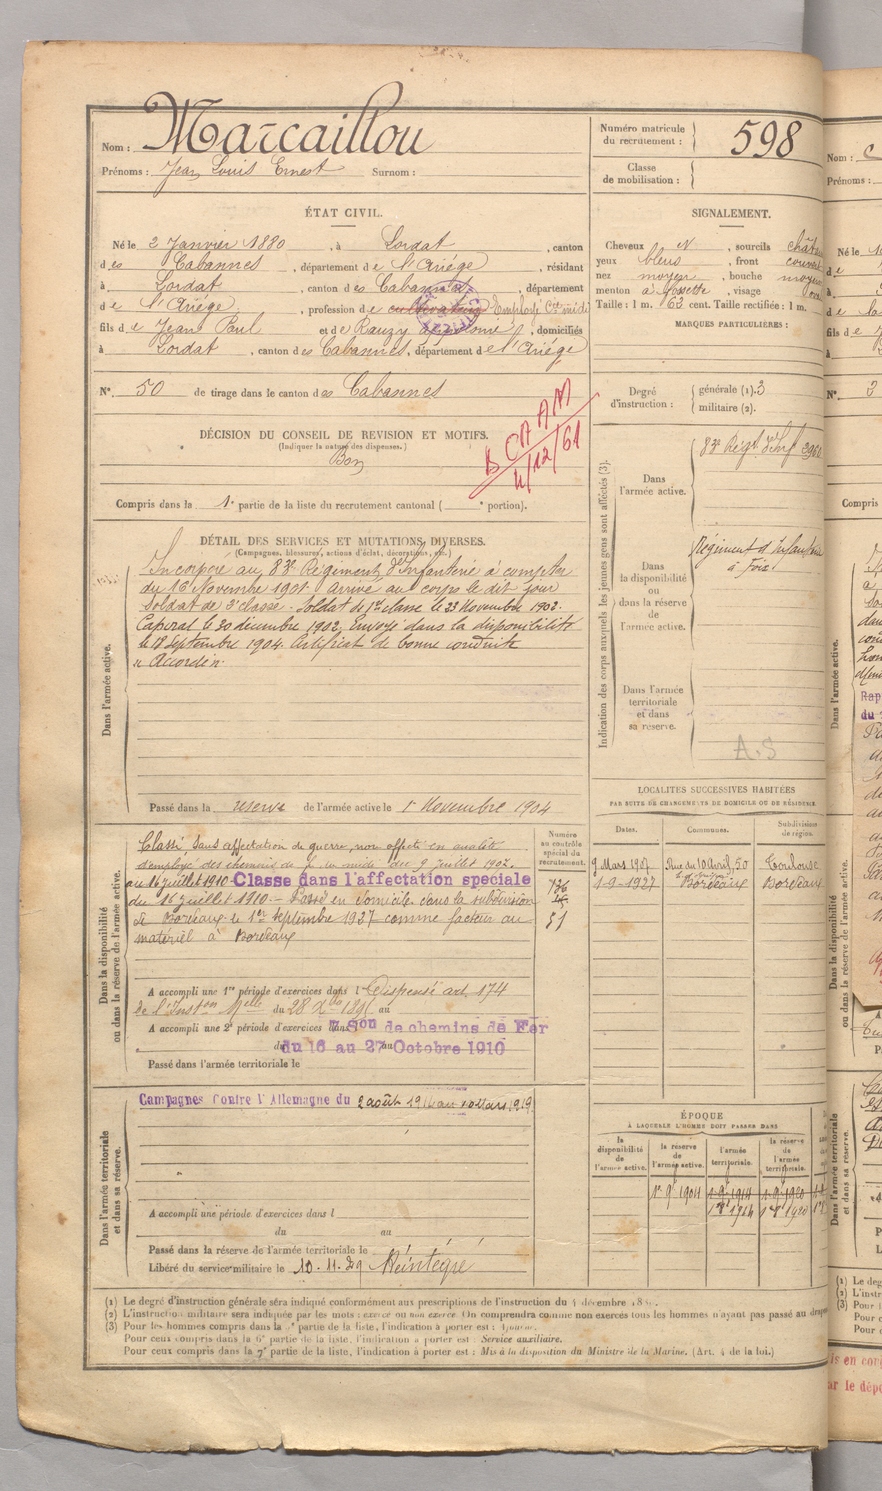 Nom : Marcaillou
Prénoms : Jean Louis Ernest Surnom :
Numéro matricule du recrutement : 598
Classe de mobilisation :
ÉTAT CIVIL.
Né le 2 Janvier 1880, à Lordat, canton
des Cabannes, département de l'Ariége, résidant
à Lordat, canton des Cabannes, département
de l'Ariége, profession de cultivateur Employé Cie midi
fils de Jean Paul et de Rauzy, domiciliés
à Lordat, canton des Cabannes, département de l'Ariége
N° 50 de tirage dans le canton des Cabannes
SIGNALEMENT.
Cheveux N, sourcils chât
yeux bleus, front couvert
nez moyen, bouche moyen
menton à fossette, visage oval
Taille : 1 m. 63 cent. Taille rectifiée : 1 m.
MARQUES PARTICULIÈRES :
Degré d'instruction : générale (1). 3
militaire (2).
DÉCISION DU CONSEIL DE REVISION ET MOTIFS.
(Indiquer la nature des dispenses.)
Bon
BCAAM
4/12/61
Compris dans la 1e partie de la liste du recrutement cantonal ( e portion).
DÉTAIL DES SERVICES ET MUTATIONS DIVERSES.
(Campagnes, blessures, actions d'éclat, décorations, etc.)
Dans l'armée active.
Incorporé au 83e Régiment d'Infanterie à compter
du 16 Novembre 1901. Arrivé au corps le dit jour
Soldat de 2e classe. Soldat de 1re classe le 23 Novembre 1902.
Caporal le 30 décembre 1902. Envoyé dans la disponibilité
le 18 Septembre 1904. Certificat de bonne conduite
"Accordé".
Passé dans la réserve de l'armée active le 1r Novembre 1904
Indication des corps auxquels les jeunes gens sont affectés (3).
Dans l'armée active.
83e Régt d'Inf
Dans la disponibilité ou dans la réserve de l'armée active.
Régiment d'Infanterie
à Foix
Dans l'armée territoriale et dans sa réserve.
A.S
LOCALITÉS SUCCESSIVES HABITÉES
PAR SUITE DE CHANGEMENTS DE DOMICILE OU DE RÉSIDENCE
Dates. Communes. Subdivision de région.
9 Mars 1907 Rue du 10 Avril, 50 Toulouse
1-9-1927 Bordeaux Bordeaux
Dans la disponibilité ou dans la réserve de l'armée active.
Numéro au contrôle spécial du recrutement.
Classé, sans affectation de guerre, non affecté en qualité
d'employé des chemins de fer du midi du 9 juillet 1907.
au 16 juillet 1910 - Classé dans l'affectation speciale
du 16 juillet 1910. - Passé en domicile dans la subdivision
de Bordeaux le 1er Septembre 1927 comme facteur au
matériel à Bordeaux
A accompli une 1re période d'exercices dans l Dispensé art. 174
de l'Inston Melle du 28 Xbre au
A accompli une 2e période d'exercices dans Son de chemins de Fer
du 16 au 27 Octobre 1910
Passé dans l'armée territoriale le
Dans l'armée territoriale et dans sa réserve.
Campagnes Contre l'Allemagne du 2 août 1914 au 10 Mars 1919
A accompli une période d'exercices dans l
du au
Passé dans la réserve de l'armée territoriale le
Libéré du service militaire le 10.11.29 Réintégré
ÉPOQUE
À LAQUELLE L'HOMME DOIT PASSER DANS
la disponibilité de l'armée active. la réserve de l'armée active. l'armée territoriale. la réserve de l'armée territoriale.
1r 9 1904 1-9-1914 1-9-1920
(1) Le degré d'instruction générale sera indiqué conformément aux prescriptions de l'instruction du 4 décembre
(2) L'instruction militaire sera indiquée par les mots : exercé ou non exercé. On comprendra comme non exercés tous les hommes n'ayant pas passé au
(3) Pour les hommes compris dans la partie de la liste, l'indication à porter est :
Pour ceux compris dans la 6e partie de la liste, l'indication à porter est : Service auxiliaire.
Pour ceux compris dans la 7e partie de la liste, l'indication à porter est : Mis à la disposition du Ministre de la Marine. (Art. 4 de la loi.)